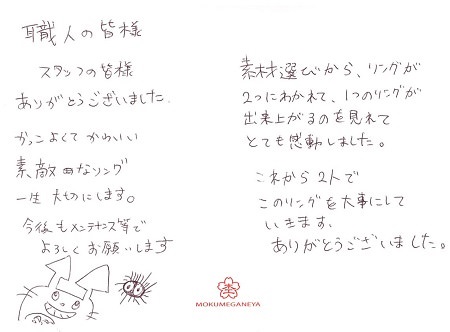 職人の皆様
スタッフの皆様
ありがとうございました.
かっこよくて かわいい
素敵なリング
一生 大切にします。
今後もメンテナンス等で
よろしくお願いします
素材選びから、リングが
2つにわかれて、1つのリングが
出来上がるのを見れて
とても感動しました。
これから2人で
このリングを大事にして
いきます.
ありがとうございました。
MOKUMEGANEYA